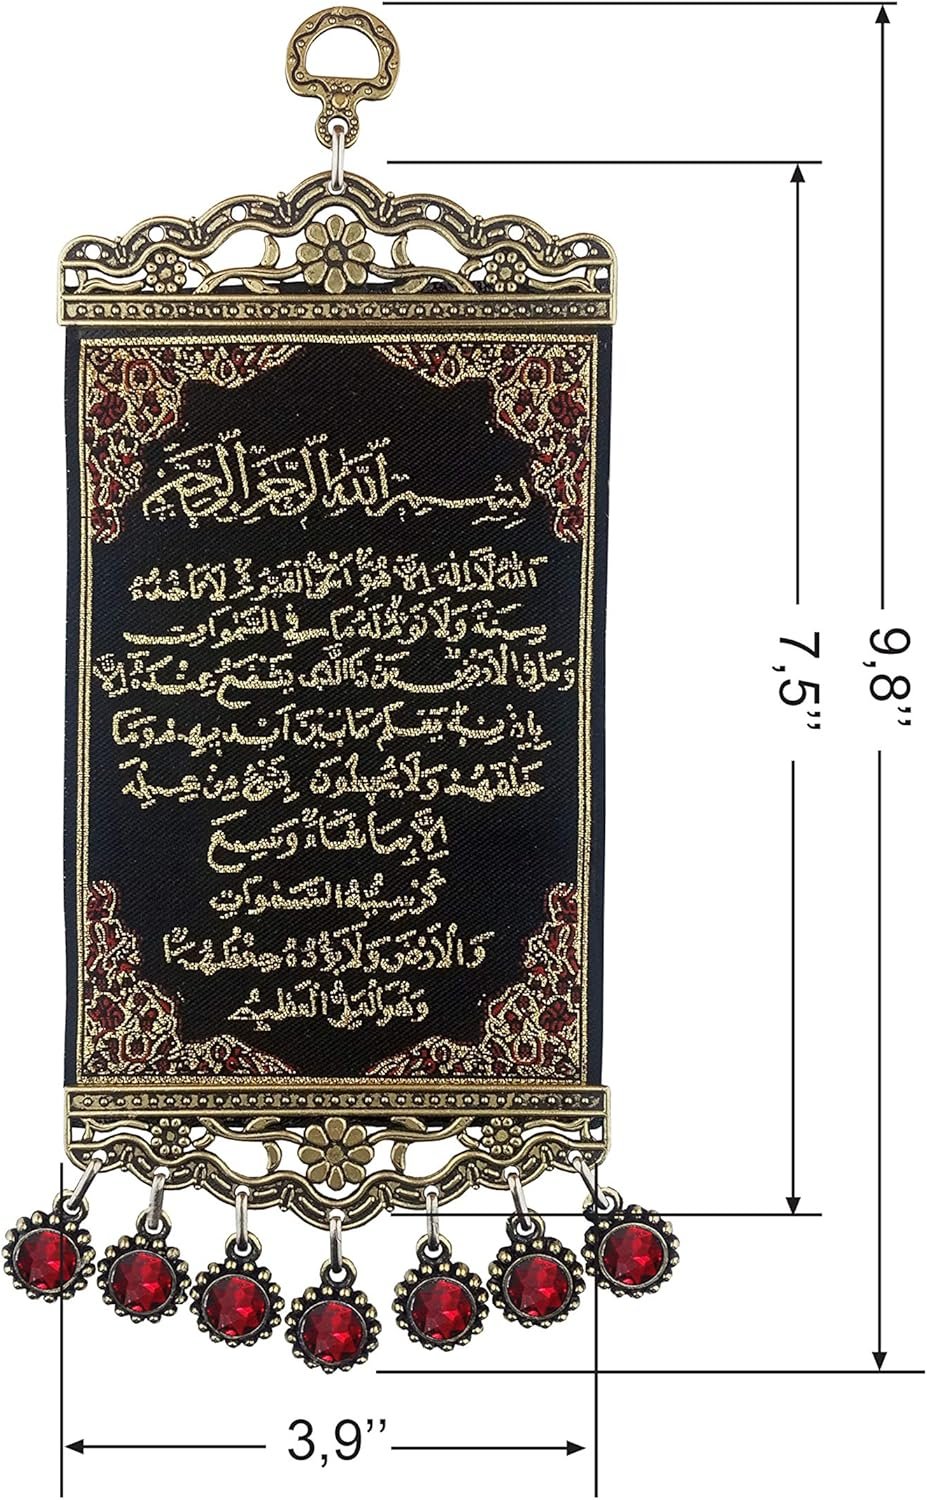 بسم الله الرحمن الرحيم
الله لا إله إلا هو الحي القيوم لا تأخذه
سنة ولا نوم له ما في السموات
وما في الأرض من ذا الذي يشفع عنده إلا
بإذنه يعلم ما بين أيديهم وما
خلفهم ولا يحيطون بشيء من علمه
إلا بما شاء وسع
كرسيه السموات
والأرض ولا يؤده حفظهما
وهو العلي العظيم
7,5’’
9,8’’
3,9’’